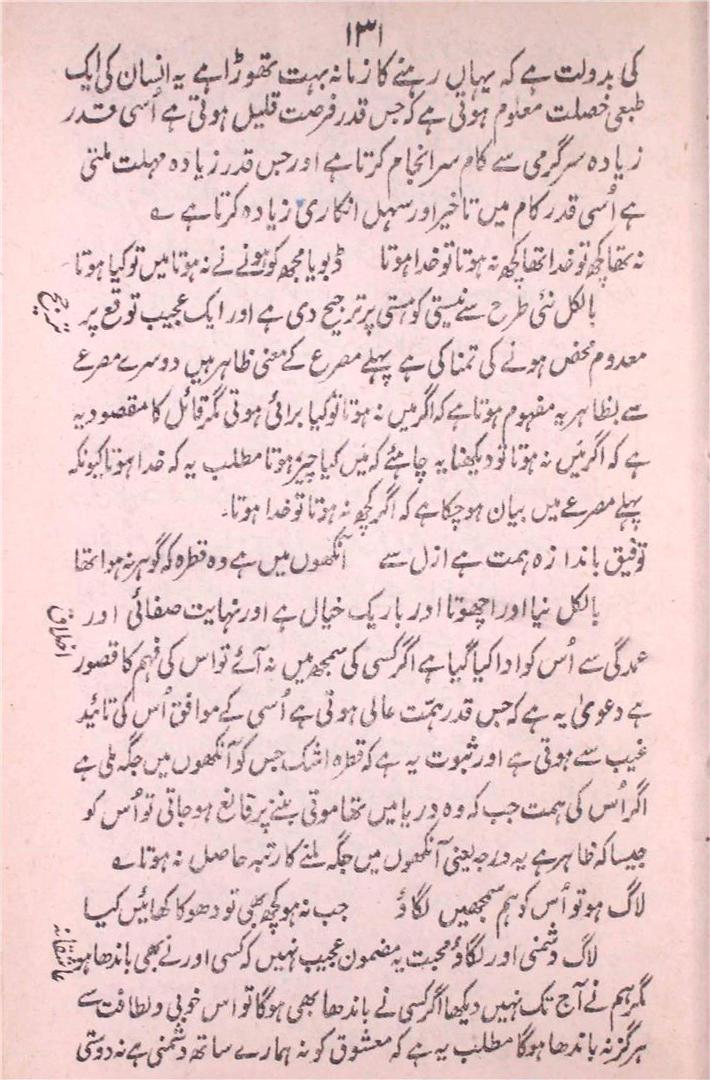 ۱۳۱
کی بدولت ہے کہ یہاں رہنے کا زمانہ بہت تھوڑا ہے یہ انسان کی ایک
طبعی خصلت معلوم ہوتی ہے کہ جس قدر فرصت قلیل ہوتی ہے اُسی قدر
زیادہ سرگرمی سے کام سرانجام کرتا ہے اور جس قدر زیادہ مہلت ملتی
ہے اُسی قدر کام میں تاخیر اور سہل انکاری زیادہ کرتا ہے ؎
نہ تھا کچھ تو خدا تھا کچھ نہ ہوتا تو خدا ہوتا ڈبویا مجھ کو ہونے نے نہ ہوتا میں تو کیا ہوتا
بالکل نئی طرح سے نیستی کو ہستی پر ترجیح دی ہے اور ایک عجیب توقع پر
معدوم محض ہونے کی تمنا کی ہے پہلے مصرع کے معنی ظاہر ہیں دوسرے مصرعے
سے بظاہر یہ مفہوم ہوتا ہے کہ اگر میں نہ ہوتا تو کیا برائی ہوتی مگر قائل کا مقصود یہ
ہے کہ اگر میں نہ ہوتا تو دیکھنا یہ چاہئے کہ میں کیا چیز ہوتا مطلب یہ کہ خدا ہوتا کیونکہ
پہلے مصرعے میں بیان ہوچکا ہے کہ اگر کچھ نہ ہوتا تو خدا ہوتا۔
توفیق باندازہ ہمت ہے ازل سے آنکھوں میں ہے وہ قطرہ کہ گوہر نہ ہوا تھا
بالکل نیا اور اچھوتا اور باریک خیال ہے اور نہایت صفائی اور
اخلاق
عمدگی سے اُس کو ادا کیا گیا ہے اگر کسی کی سمجھ میں نہ آئے تو اس کی فہم کا قصور
ہے دعویٰ یہ ہے کہ جس قدر ہمّت عالی ہوتی ہے اُسی کے موافق اُس کی تائید
غیب سے ہوتی ہے اور ثبوت یہ ہے کہ قطرہ اشک جس کو آنکھوں میں جگہ ملی ہے
اگر اُس کی ہمت جب کہ وہ دریا میں تھا موتی بننے پر قانع ہوجاتی تو اُس کو
جیسا کہ ظاہر ہے یہ درجہ یعنی آنکھوں میں جگہ ملنے کا رتبہ حاصل نہ ہوتا ؎
لاگ ہو تو اُس کو ہم سمجھیں لگاؤ جب نہ ہو کچھ بھی تو دھوکا کھائیں کیا
لاگ دشمنی اور لگاؤ محبت یہ مضمون عجیب نہیں کہ کسی اور نے بھی باندھا ہو
عاشقانہ
مگر ہم نے آج تک نہیں دیکھا اگر کسی نے باندھا بھی ہوگا تو اس خوبی و لطافت سے
ہرگز نہ باندھا ہوگا مطلب یہ ہے کہ معشوق کو نہ ہمارے ساتھ دشمنی ہے نہ دوستی